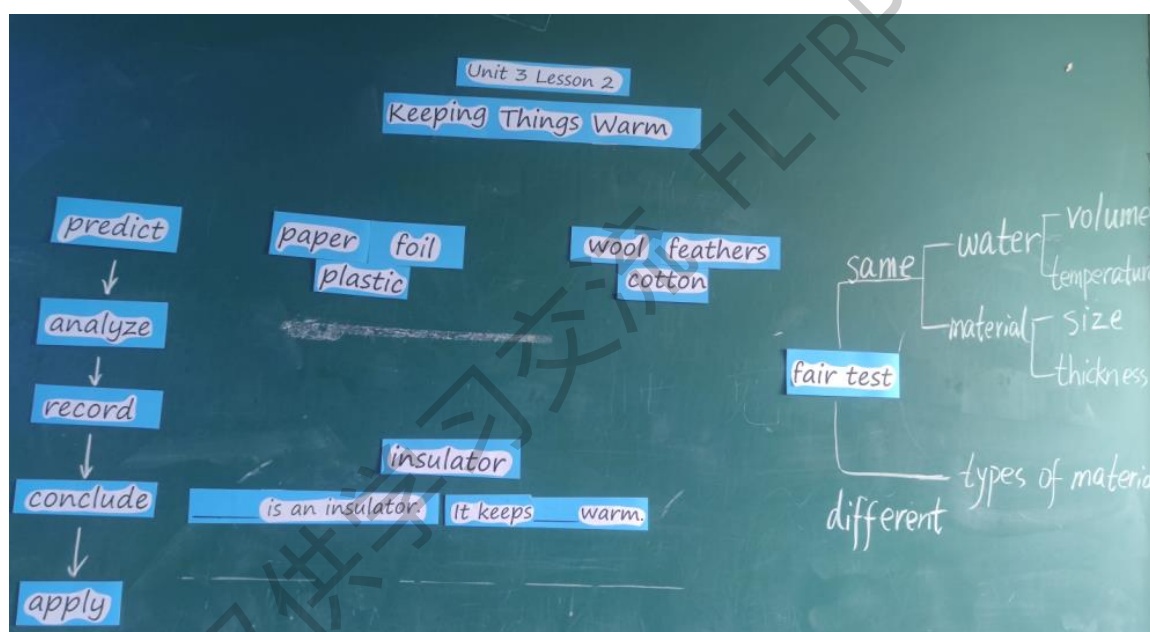 Unit 3 Lesson 2
Keeping Things Warm
predict
analyze
record
conclude
apply
paper foil
plastic
wool feathers
cotton
insulator
____ is an insulator. It keeps ____ warm.
fair test
same
water
volume
temperature
material
size
thickness
different
types of materia
仅供学习交流 FLTRP